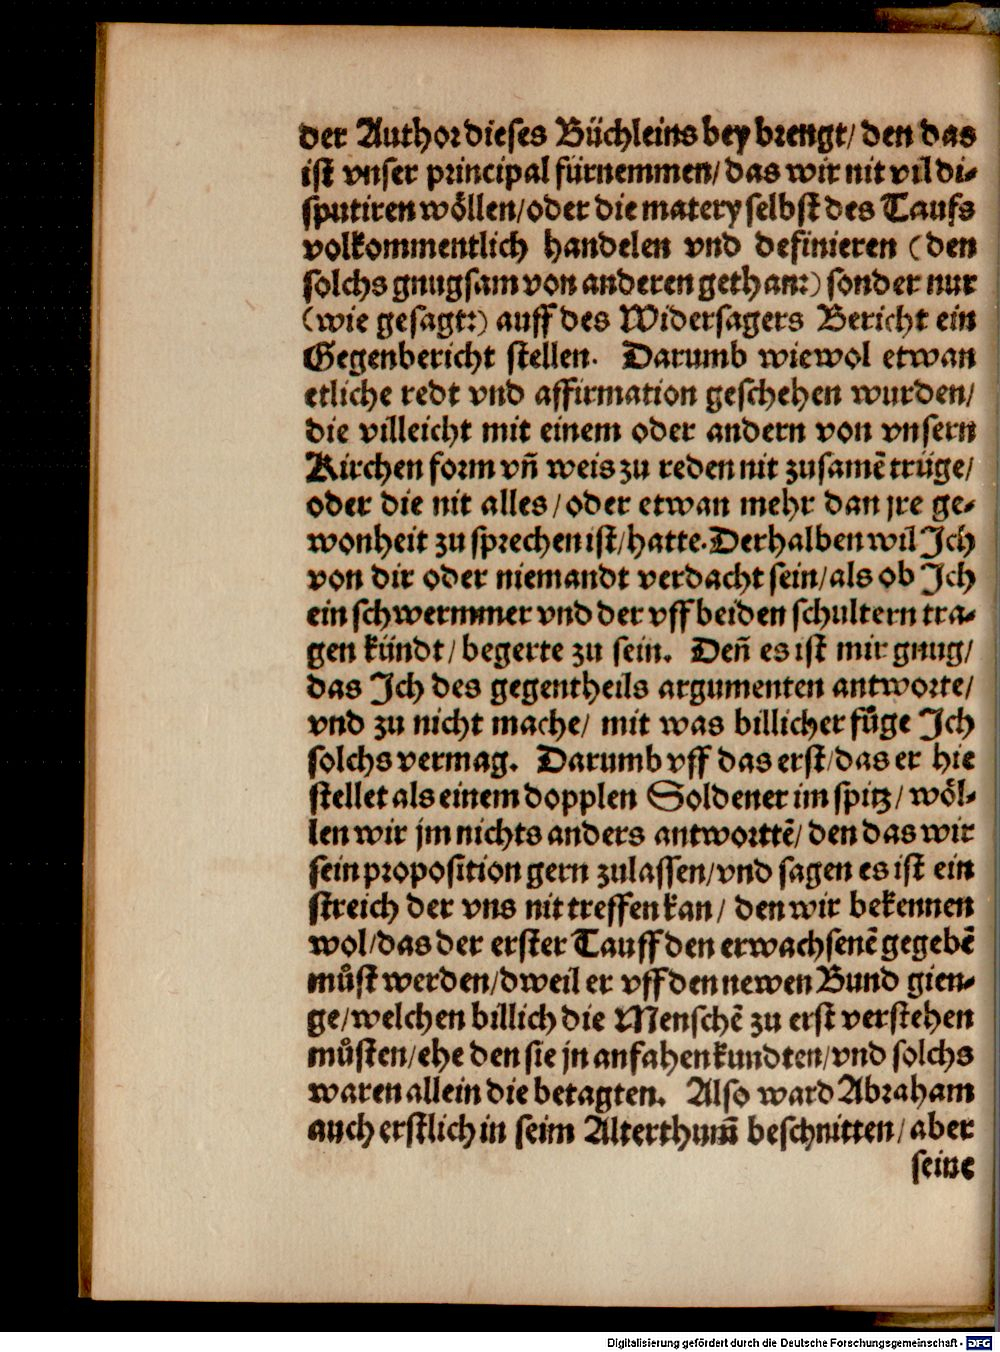 der Author dieses Büchleins bey brengt/ den das
ist vnser principal fürnemmen/ das wir nit vil di⸗
sputiren wöllen/ oder die matery selbst des Taufs
volkommentlich handelen vnd definieren (den
solchs gnugsam von anderen gethan:) sonder nur
(wie gesagt:) auff des Widersagers Bericht ein
Gegenbericht stellen. Darumb wiewol etwan
etliche redt vnd affirmation geschehen wurden/
die villeicht mit einem oder andern von vnsern
Kirchen form vñ weis zu reden nit zusamē trüge/
oder die nit alles/ oder etwan mehr dan jre ge⸗
wonheit zu sprechen ist/ hatte. Derhalben wil Ich
von dir oder niemandt verdacht sein/ als ob Ich
ein schwermmer vnd der vff beiden schultern tra⸗
gen kündt/ begerte zu sein. Deñ es ist mir gnug/
das Ich des gegentheils argumenten antworte/
vnd zu nicht mache/ mit was billicher fůge Ich
solchs vermag. Darumb vff das erst/ das er hie
stellet als einem dopplen Soldener im spitz/ wöl⸗
len wir jm nichts anders antworttē/ den das wir
sein proposition gern zulassen/ vnd sagen es ist ein
streich der vns nit treffen kan/ den wir bekennen
wol/ das der erster Tauff den erwachsenē gegebē
můst werden/ dweil er vff den newen Bund gien⸗
ge/ welchen billich die Menschē zu erst verstehen
můsten/ ehe den sie jn anfahen kundten/ vnd solchs
waren allein die betagten. Also ward Abraham
auch erstlich in seim Alterthum̄ beschnitten/ aber
seine
Digitalisierung gefördert durch die Deutsche Forschungsgemeinschaft - DFG